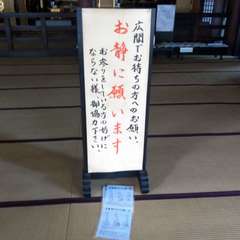 広間でお待ちの方へのお願い、
お静に願います
お参りをしている方の妨げに
ならない様、御協力下さい。